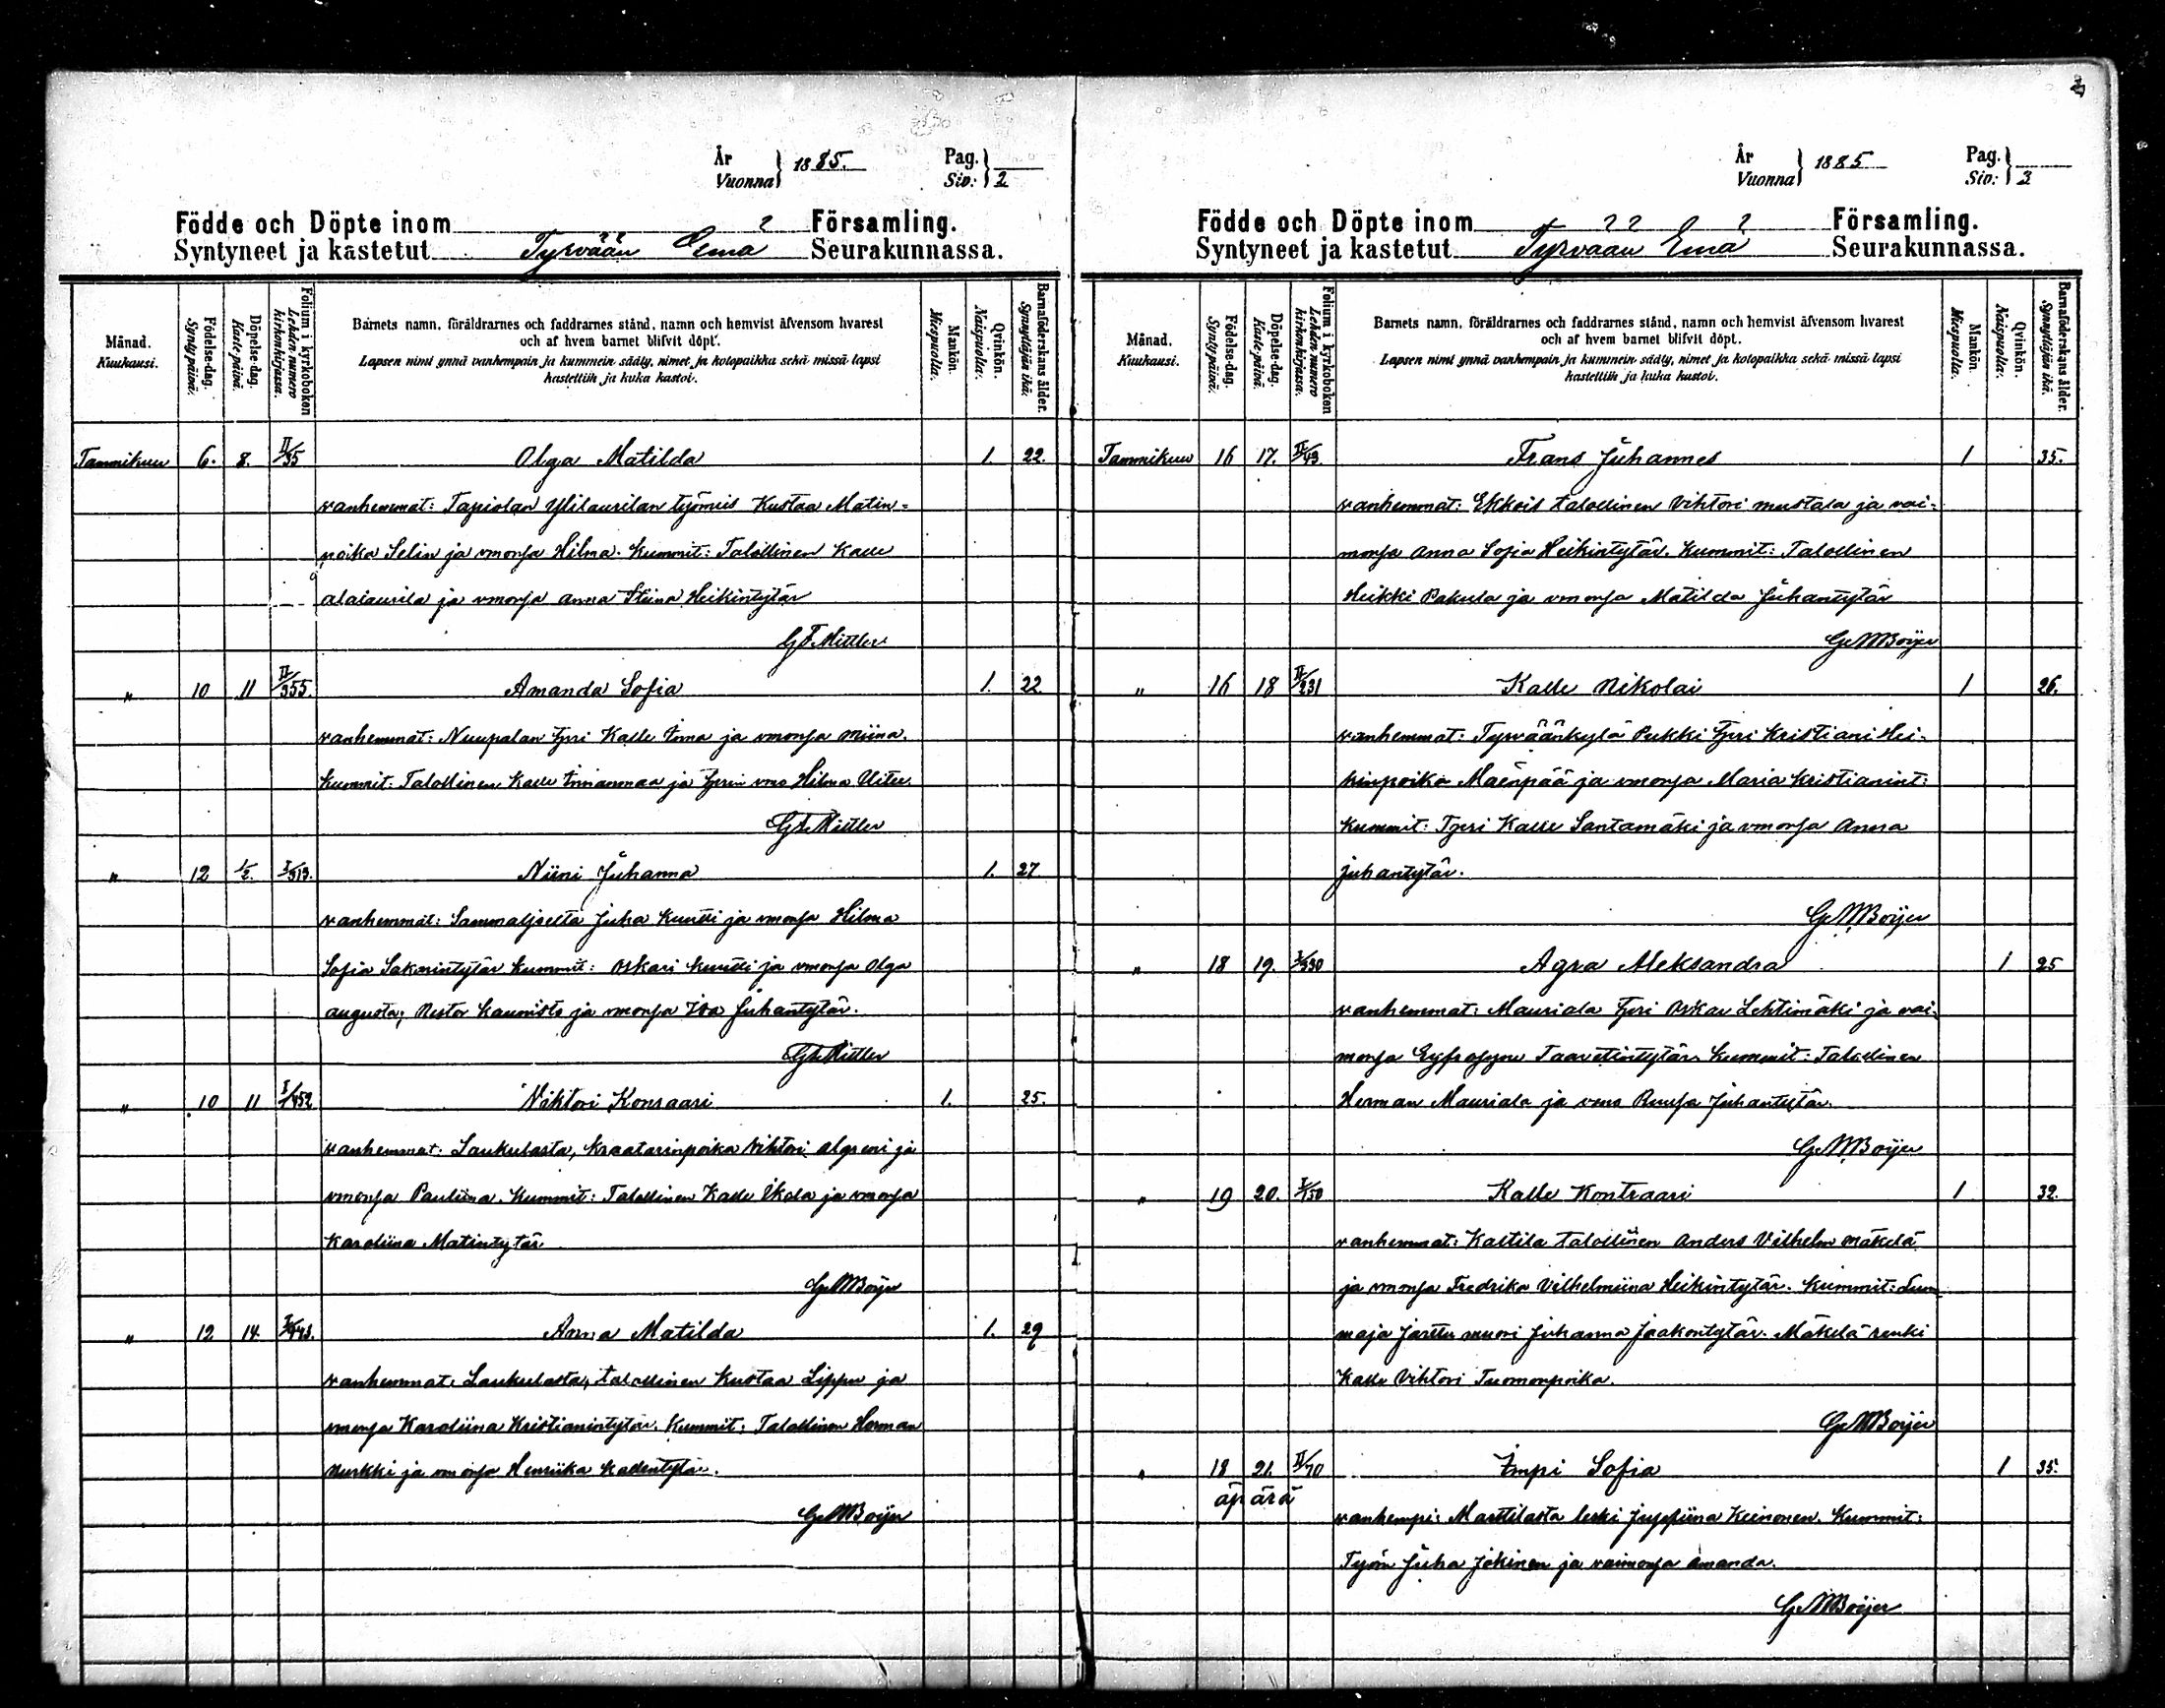 År
Vuonna } 1885.
Pag.
Siv: } 2
Födde och Döpte inom Församling.
Syntyneet ja kastetut Tyrvään Emä Seurakunnassa.
Månad.
Kuukausi.
Födelse-dag.
Syntypäivä.
Döpelse-dag.
Kaste-päivä.
Folium i kyrkoboken
Lehden numero
kirkonkirjassa.
Barnets namn, föräldrarnes och faddrarnes stånd, namn och hemvist äfvensom hvarest
och af hvem barnet blifvit döpt.
Lapsen nimi ynnä vanhempain ja kummein sääty, nimet ja kotopaikka sekä missä lapsi
kastettiin ja kuka kastoi.
Mankön.
Miespuolia.
Qvinkön.
Naispuolia.
Barnaföderskans ålder.
Synnyttäjän ikä.
Tammikuu 6. 8. II/35 Olga Matilda 1. 22.
vanhemmat: Tapiolan Ylilaurilan työmies Kustaa Matin=
poika Selin ja vmonsa Hilma. Kummit: Talollinen Kalle
alalaurila ja vmonsa anna Stiina Heikintytär
G F Mittler
" 10 11 II/355. Amanda Sofia 1. 22
vanhemmat: Nuupalan Tpri Kalle ja vmonsa Miina.
Kummit: Talollinen Kalle ja Tprin vmo Hilma
G F Mittler
" 12 1/2. I/313. Niini Juhanna 1. 27
vanhemmat: Sammaljoelta Juha Kuutti ja vmonsa Hilma
Sofia Sakarintytär Kummit: Oskari Kuutti ja vmonsa Olga
augusta, Nestor Kaunisto ja vmonsa Iida Juhantytär.
G F Mittler
" 10 11 I/452 Viktori Konraari 1. 25.
vanhemmat: Laukulasta, Kraatarinpoika Vihtori algreni ja
vmonsa Pauliina. Kummit: Talollinen Kalle Ikola ja vmonsa
Karoliina Matintytär
G M Boijer
" 12 14. I/443. Anna Matilda 1. 29
vanhemmat: Laukulasta, talollinen Kustaa Lippu ja
vmonsa Karoliina Kristianintytär. Kummit: Talollinen Herman
Murkki ja vmonsa Henriika Kallentytär.
G M Boijer
År
Vuonna } 1885
Pag.
Siv: } 3
Födde och Döpte inom Församling.
Syntyneet ja kastetut Tyrvään Emä Seurakunnassa.
Månad.
Kuukausi.
Födelse-dag.
Syntypäivä.
Döpelse-dag.
Kaste-päivä.
Folium i kyrkoboken
Lehden numero
kirkonkirjassa.
Barnets namn, föräldrarnes och faddrarnes stånd, namn och hemvist äfvensom hvarest
och af hvem barnet blifvit döpt.
Lapsen nimi ynnä vanhempain ja kummein sääty, nimet ja kotopaikka sekä missä lapsi
kastettiin ja kuka kastoi.
Mankön.
Miespuolia.
Qvinkön.
Naispuolia.
Barnaföderskans ålder.
Synnyttäjän ikä.
Tammikuu 16 17. II/43. Frans Juhannes 1 35.
vanhemmat: Ekkois talollinen Vihtori mustala ja vai=
monsa Anna Sofia Heikintytär. Kummit: Talollinen
Heikki Pakula ja vmonsa Matilda Juhantytär
G M Boijer
" 16 18 II/231 Kalle Nikolai 1 26.
vanhemmat: Tyrväänkylä Pukki Tpri Kristiani Hei=
kinpoika Mäenpää ja vmonsa Maria Kristianint:
Kummit: Tpri Kalle Santamäki ja vmonsa Anna
juhantytär.
G M Boijer
" 18 19. I/330 Agra Aleksandra 1 25
vanhemmat: Mauriala Tpri Oskar Lehtimäki ja vai=
monsa Taavetintytär. Kummit: Talollinen
Herman Mauriala ja vmo Ruusa Juhantytär.
G M Boijer
" 19 20. I/150 Kalle Kontraari 1 32.
vanhemmat: Kaltila talollinen Anders Vilhelm Mäkelä
ja vmonsa Fredrika Vilhelmiina Heikintytär. Kummit: Lum=
maja muori Juhanna Jaakontytär. Mäkelä renki
Kalle Vihtori Tuomonpoika.
G M Boijer
" 18 21. II/70 Impi Sofia 1 35.
äpärä
vanhempi: Marttilasta leski Keinonen. Kummit:
Työm Juha Jokinen ja vaimonsa Amanda.
G M Boijer